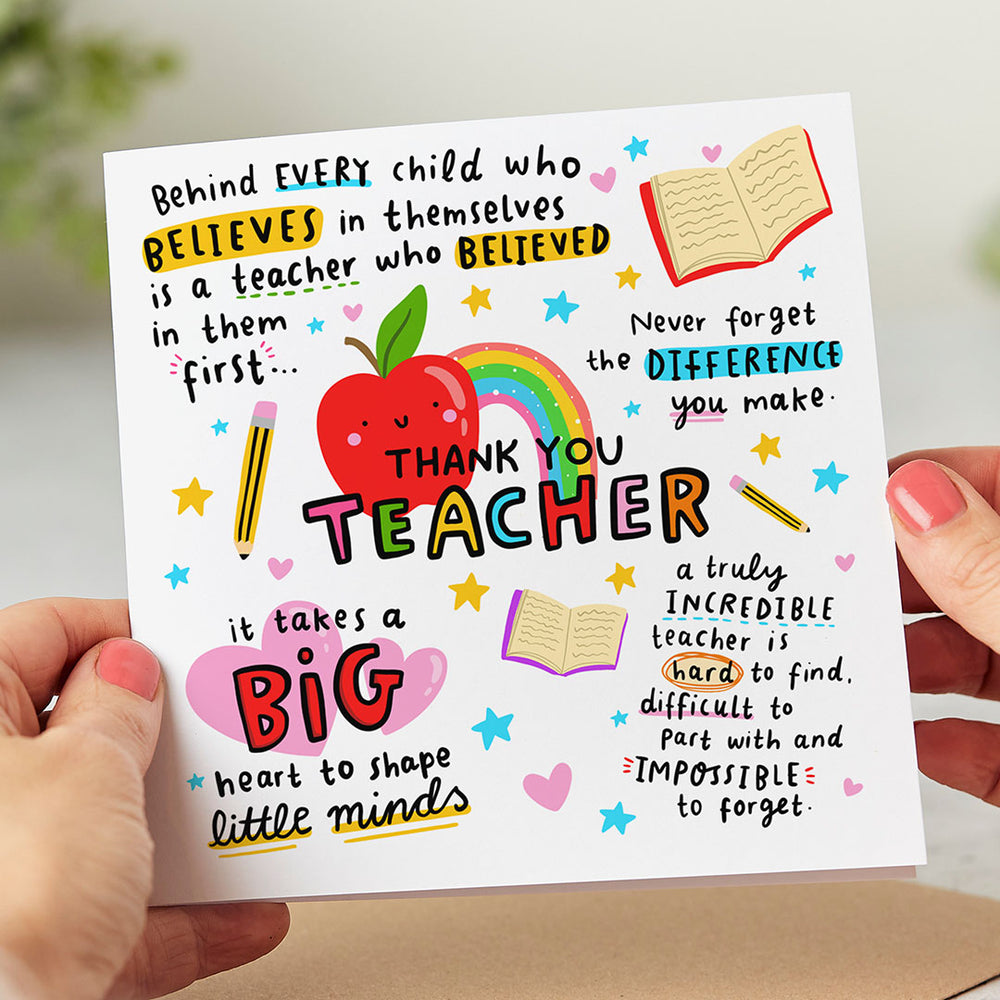 Behind EVERY child who
BELIEVES in themselves
is a teacher who BELIEVED
in them
first...
Never forget
the DIFFERENCE
you make.
THANK YOU
TEACHER
it takes a
BiG
heart to shape
little minds
a truly
INCREDIBLE
teacher is
hard to find,
difficult to
part with and
IMPOSSIBLE
to forget.